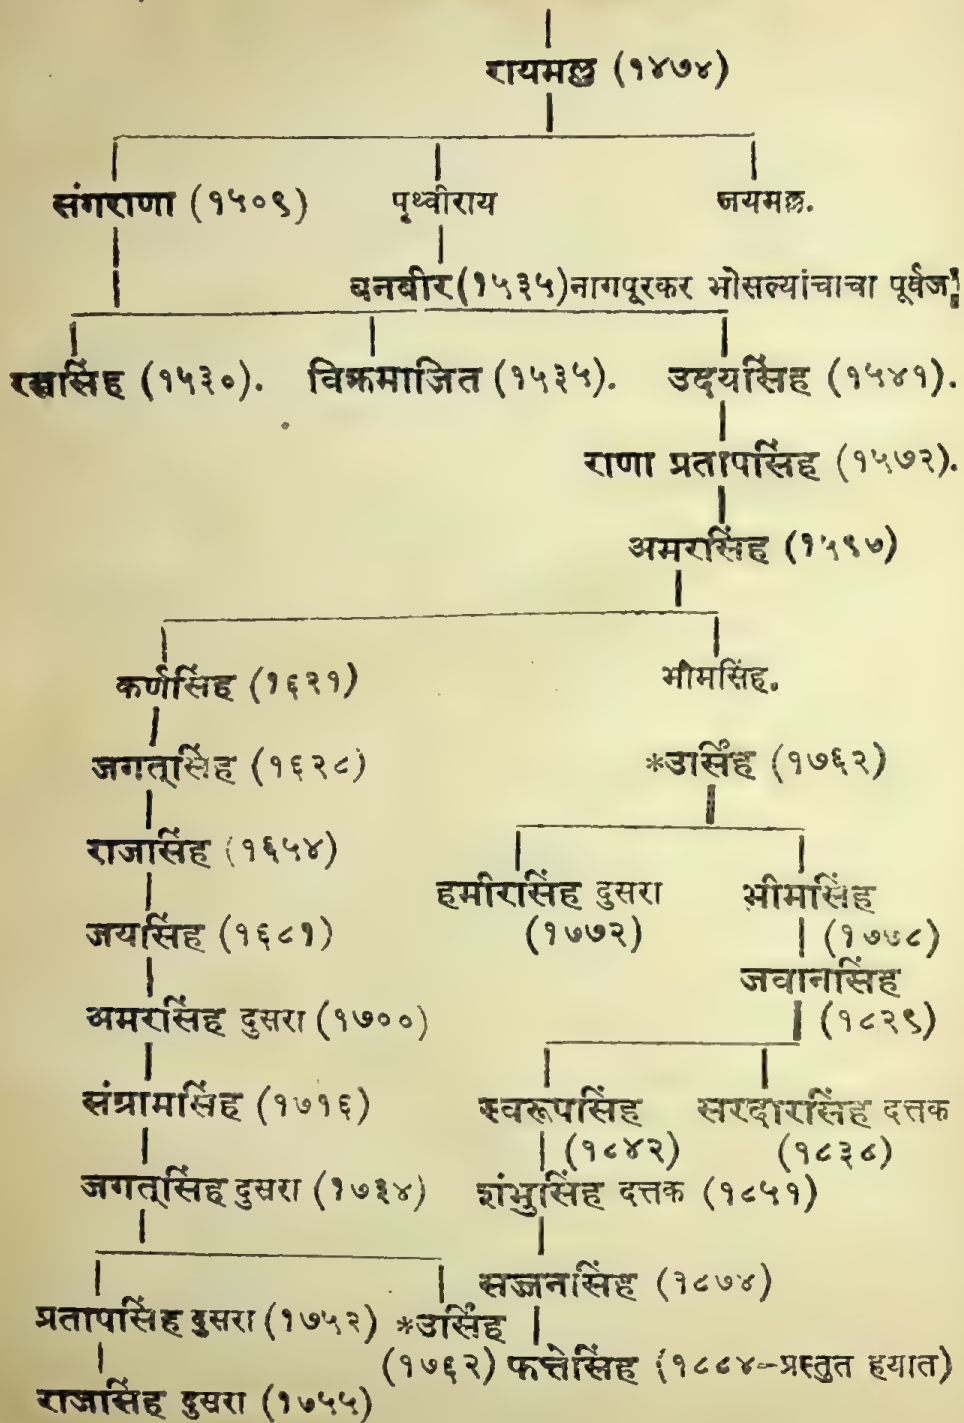 रायमल्ल (१४७४)
संगराणा (१५०९) पृथ्वीराय जयमल्ल.
बनबीर (१५३५) नागपूरकर भोसल्यांचाचा पूर्वज
रत्नसिंह (१५३०). विक्रमाजित (१५३५). उदयसिंह (१५४१).
राणा प्रतापसिंह (१५७२).
अमरसिंह (१५९७)
कर्णसिंह (१६२१) भीमसिंह.
जगत्सिंह (१६२८) *उर्सिंह (१७६२)
राजसिंह (१६५४)
हमीरसिंह दुसरा भीमसिंह
जयसिंह (१६८१) (१७७२) (१७७८)
जवानसिंह
अमरसिंह दुसरा (१७००) (१८२९)
संग्रामसिंह (१७१६) स्वरूपसिंह सरदारसिंह दत्तक
(१८४२) (१८३८)
जगत्सिंह दुसरा (१७३४) शंभुसिंह दत्तक (१८५१)
सज्जनसिंह (१८७४)
प्रतापसिंह दुसरा (१७५२) *उर्सिंह
(१७६२) फत्तेसिंह (१८८४-प्रस्तुत हयात)
राजसिंह दुसरा (१७५५)